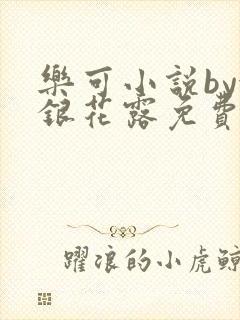 樂可小説by
銀花露免費
躍浪的小虎鯨